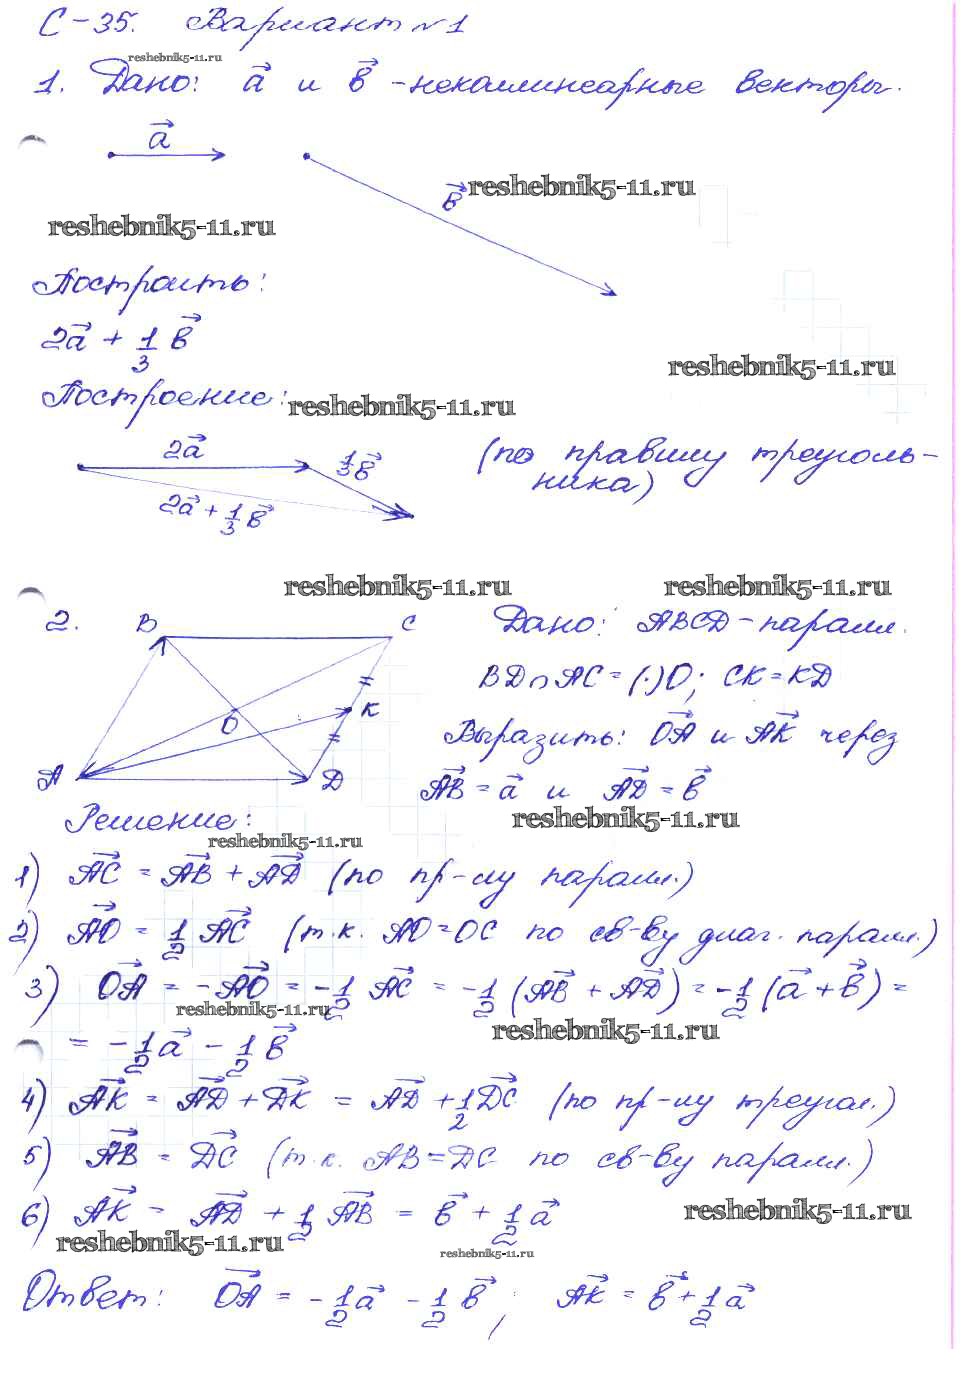 С-35. Вариант №1
reshebnik5-11.ru
1. Дано: a⃗ и b⃗ - неколлинеарные векторы.
a⃗
b⃗
reshebnik5-11.ru
reshebnik5-11.ru
Построить:
2a⃗ + 1/3 b⃗
reshebnik5-11.ru
Построение:
reshebnik5-11.ru
2a⃗
1/3 b⃗
(по правилу треуголь-
ника)
2a⃗ + 1/3 b⃗
reshebnik5-11.ru reshebnik5-11.ru
2.
B
C
O
K
A
D
Дано: ABCD - паралл.
BD∩AC = (·)O; CK = KD
Выразить: OA⃗ и AK⃗ через
AB⃗ = a⃗ и AD⃗ = b⃗
reshebnik5-11.ru
Решение:
reshebnik5-11.ru
1) AC⃗ = AB⃗ + AD⃗ (по пр-лу паралл.)
2) AO⃗ = 1/2 AC⃗ (т.к. AO=OC по св-ву диаг. паралл.)
3) OA⃗ = -AO⃗ = -1/2 AC⃗ = -1/2 (AB⃗ + AD⃗) = -1/2 (a⃗ + b⃗) =
reshebnik5-11.ru
reshebnik5-11.ru
= -1/2 a⃗ - 1/2 b⃗
4) AK⃗ = AD⃗ + DK⃗ = AD⃗ + 1/2 DC⃗ (по пр-лу треугол.)
5) AB⃗ = DC⃗ (т.к. AB=DC по св-ву паралл.)
6) AK⃗ = AD⃗ + 1/2 AB⃗ = b⃗ + 1/2 a⃗
reshebnik5-11.ru
reshebnik5-11.ru
reshebnik5-11.ru
Ответ: OA⃗ = -1/2 a⃗ - 1/2 b⃗ ; AK⃗ = b⃗ + 1/2 a⃗